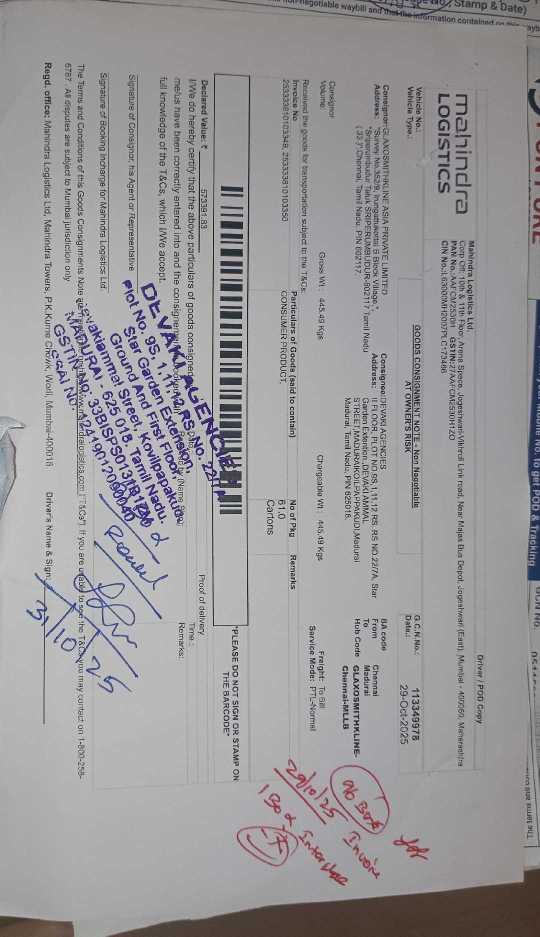 Driver / POD Copy
mahindra
LOGISTICS
Mahindra Logistics Ltd.
Corp Off: 10th & 11th Floor, Arena Space, Jogeshwari-Vikhroli Link road, Near Majas Bus Depot, Jogeshwari (East), Mumbai - 400060, Maharashtra
PAN No.:AAFCM2530H GSTIN:27AAFCM2530H1ZO
CIN No.:L63000MH2007PLC173466
GOODS CONSIGNMENT NOTE - Non Negotiable
AT OWNER'S RISK
Vehicle No.:
Vehicle Type.:
G.C.N.No.: 113349978
Date.: 29-Oct-2025
Consignor:GLAXOSMITHKLINE ASIA PRIVATE LIMITED
Consignee:DEVAKI AGENCIES
BA code
From Chennai
To Madurai
Hub Code GLAXOSMITHKLINE-
Chennai-MLLB
Address: II FLOOR, PLOT NO.9S,1,11,12 RS .RS NO.22/7A, Star
Garden Extention, DEVAKI AMMAL
STREET,MADURAIKOILPAPPAKUDI,Madurai
Madurai, Tamil Nadu, PIN 625018.
( 33 )*,Chennai, Tamil Nadu, PIN 602117.
Consignor
Volume:
Gross Wt : 445.49 Kgs
Chargeable Wt : 445.49 Kgs
Freight: To Bill
Service Mode: PTL-Normal
Received the goods for transportation subject to the T&Cs.
Invoice No
Particulars of Goods (said to contain)
No of Pkg
Remarks
253333810103349, 253333810103350
CONSUMER PRODUCT,
61.0
Cartons
*PLEASE DO NOT SIGN OR STAMP ON
THE BARCODE*
Declared Value: ₹ 573391.83
I/We do hereby certify that the above particulars of goods consigned
me/us have been correctly entered into and the consignment
full knowledge of the T&Cs, which I/We accept.
Proof of delivery
Time :
Remarks:
Signature of Consignor, his Agent or Representative
Signature of Booking Incharge for Mahindra Logistics Ltd.
DEVAKI AGENCIES
Plot No. 9S, 1,11,12 RS.No. 22/7A
Star Garden Extention,
Ground and First Floor
Devakiammal Street, Kovilpapakudi
MADURAI - 625 018. Tamil Nadu.
31/10/25
The Terms and Conditions of this Goods Consignments Note are
If you are unable to see the T&Cs, you may contact on 1-800-258-
6787 . All disputes are subject to Mumbai jurisdiction only
Regd. office: Mahindra Logistics Ltd, Mahindra Towers, P.K.Kurne Chowk, Worli, Mumbai-400018
Driver's Name & Sign:
29/10/25 Invoice